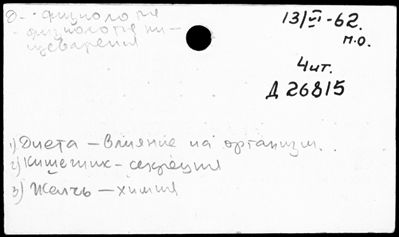 физиология
физиология пи-
щеварения
13/VI-62.
м.о.
4 ит.
Д 26815
1) Диета – влияние на организм.
2) Кишечник – секреция
3) Желчь – химия